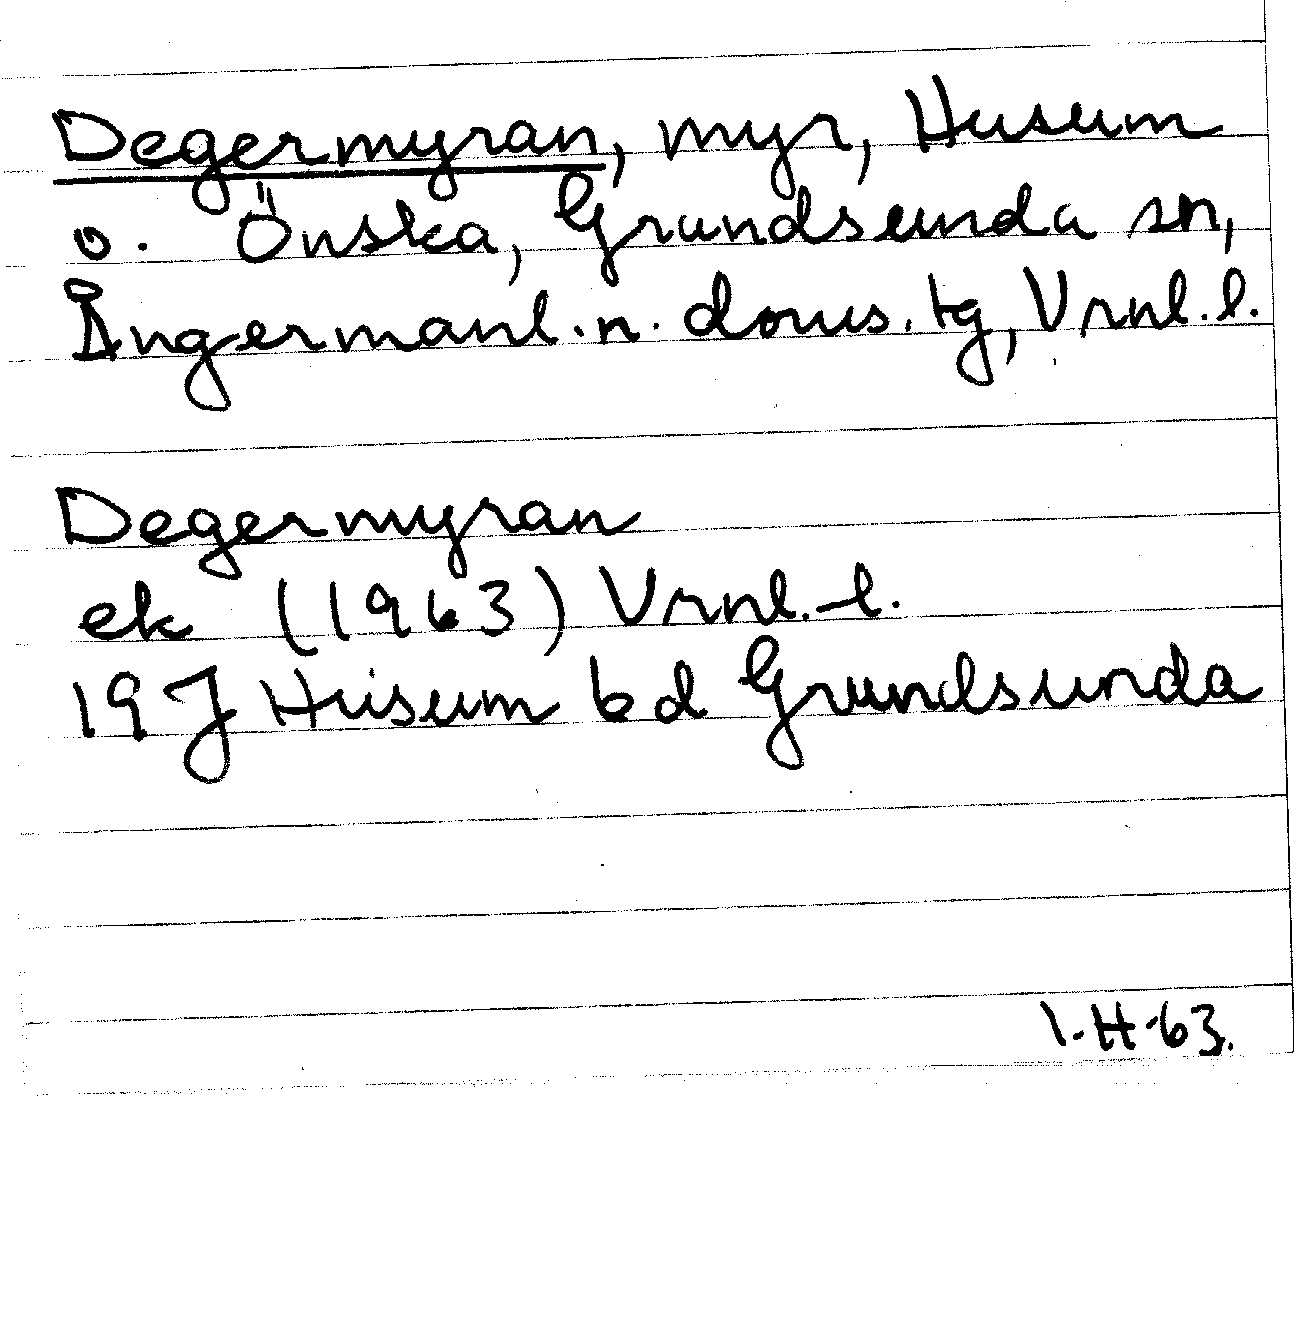 Degermyran, myr, Husum
o. Önska, Grundsunda sn,
Ångermanl. n. doms. tg, Vrnl. l.
Degermyran
ek (1963) Vrnl. l.
19 J Husum bd Grundsunda
1.H.63.